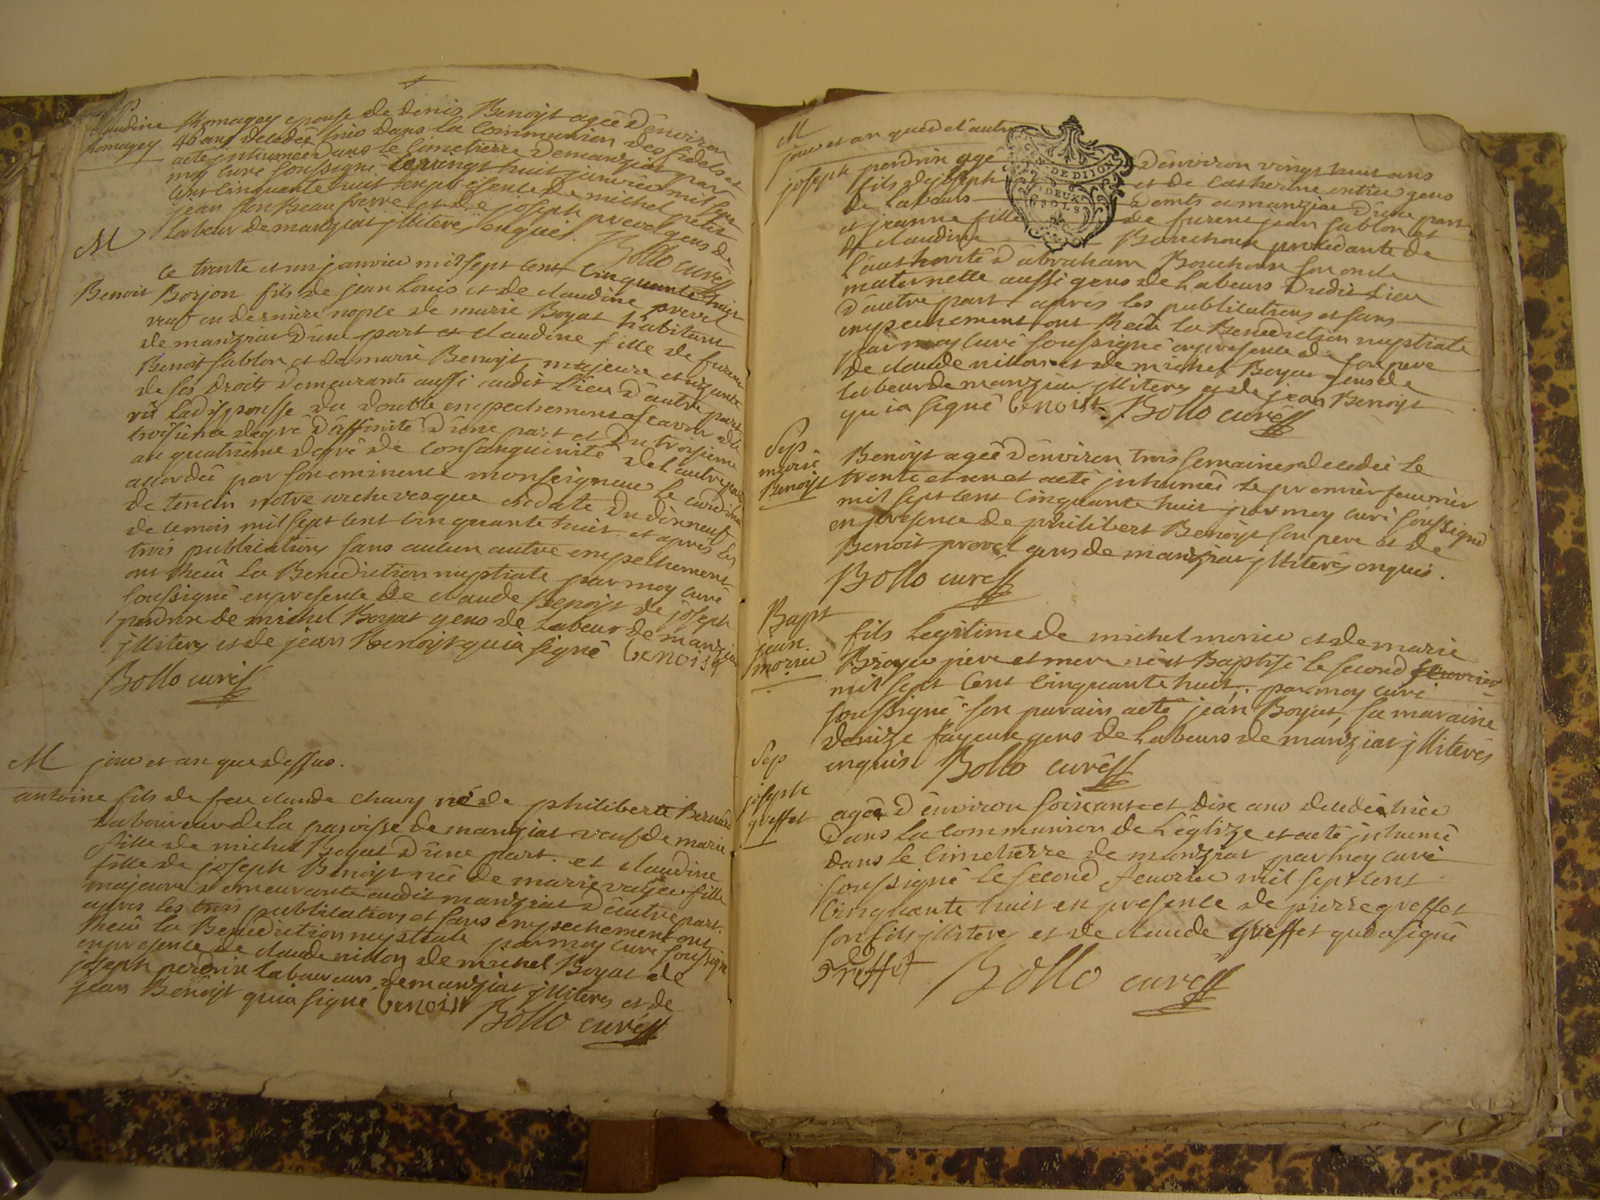 Sep
claudine
homagey
thomagey epouse de denis Benoist agée d'environ
40 ans decedée hier dans la Communion des fidels et
acte inhumée dans le Cimetierre de manziat par
moy curé soussigné le vingt huit janvier mil sept
cent cinquante huit en presence de michel
jean son Beau frerre et de joseph prevel gens de
labeur de manziat jlliterés enquis.
Bollo curé
M
Ce trente et un janvier mil sept cent cinquante huit
Benoit Borjon fils de jean Louis et de claudine prevel
veuf en derniere nopce de marie Boyat habitant
de manziat d'une part et claudine fille de furent
Benoit fablon et de marie Benoist, majeure et
de ses droits demeurante aussi audit Lieu d'autre part
vû la dispensse du double empechement a scavoir du
troisieme degré d'affinité d'une part et du troisieme
au quatrieme degré de consanguinité de l'autre part
accordée par son eminence monseigneur le cardinal
de tencin notre archevesque en date du dixneuf
de ce mois mil sept cent cinquante huit et apres les
trois publications sans aucun autre empechement
ont Receu la Benediction nuptiale par moy curé
soussigné en presence de claude Benoist de joseph
perdrix de michel Boyat gens de Labeur de manziat
jlliterés et de jean Benoist qui a signé benoist
Bollo curé
M jour et an que dessus.
antoine fils de feu claude chavy né de philiberte Bernard
Laboureur de la paroisse de manziat veuf de marie
fille de michel Boyat d'une part. et claudine
fille de joseph Benoist née de marie fille
majeure demeurante audit manziat d'autre part.
apres les trois publications et sans empechement ont
Receu la Benediction nuptiale par moy curé soussigné
en presence de claude nillon de michel Boyat de
joseph perdrix Laboureurs de manziat jlliterés et de
jean Benoist qui a signé benoist
Bollo curé
M
jour et an que d'autre
joseph perdrix agé d'environ vingt huit ans
fils de joseph et de catherine gens
de Labeurs dem.ts a manziat d'une part
et jeanne fille de furent jean fablon et
de claudine Bouchoux procedante de
l'authorité d'abraham Bouchoux son oncle
maternelle aussi gens de Labeurs dudit Lieu
d'autre part apres les publications et sans
empechement ont Receu la Benediction nuptiale
par moy curé soussigné en presence de son pere
de claude nillon et de michel Boyat gens de
labeur de manziat jlliterés et de jean Benoist
qui a signé benoist Bollo curé
GEN DE DIJON
DEUX
SOLS
Sep
marie
Benoist
Benoist agée d'environ trois semaines decedée le
trente et un et acté inhumée le premier feuvrier
mil sept cent cinquante huit par moy curé soussigné
en presence de philibert Benoist son pere et de
Benoit prevel gens de manziat jlliterés enquis.
Bollo curé
Bapt
jean
morier
fils legitime de michel morier et de marie
Broyer piere et mere né et Baptisé le second feuvrier
mil sept Cent Cinquante huit. par moy curé
soussigné son parain acté jean Boyat, sa maraine
denize fayeux gens de Labeurs de manziat jlliterés
enquis Bollo curé
Sep
joseph
greffet
agée d'environ soixante et dix ans decedé hier
dans la communion de L'eglize et acté inhumé
dans le Cimetierre de manziat par moy curé
soussigné le second feuvrier mil sept cent
cinquante huit en presence de pierre greffet
son fils jlliteré et de claude greffet qui a signé
greffet Bollo curé